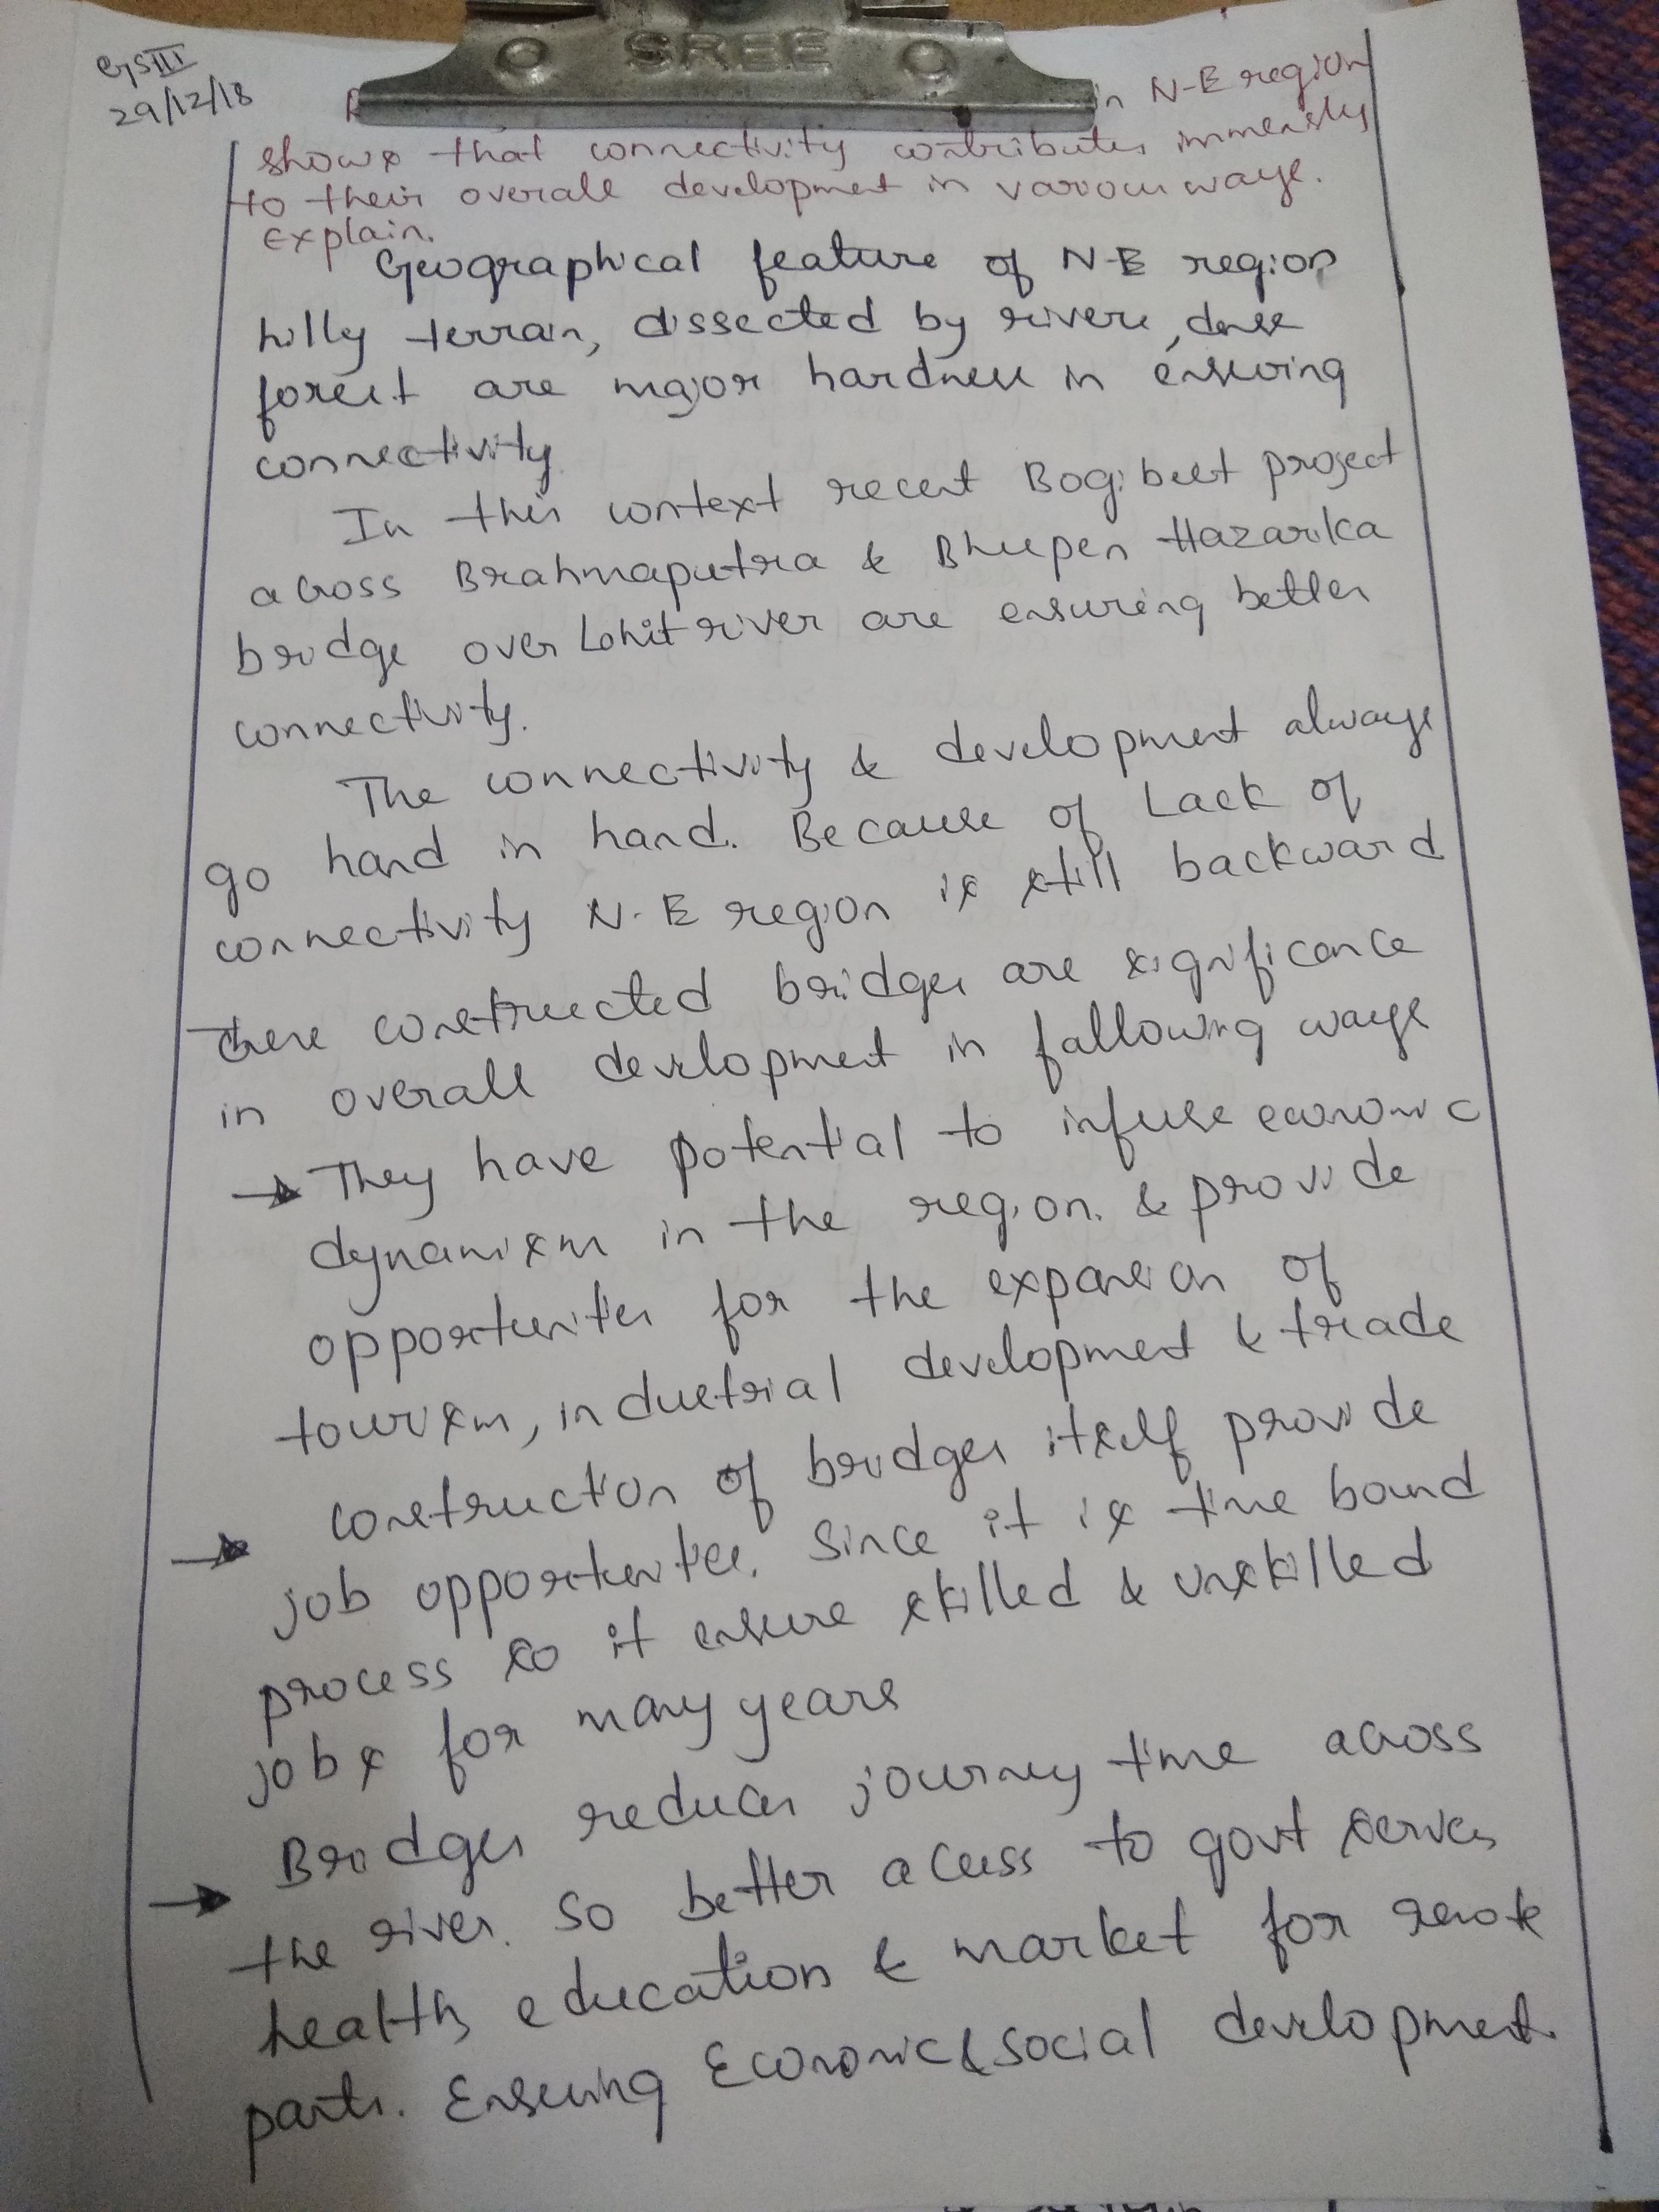 SREE
GSIII
29/12/18
in N-E region
shows that connectivity contributes immensly
to their overall development in various ways.
Explain.
Geographical feature of N-E region
hilly terrain, dissected by rivers, dense
forest are major hardness in ensuring
connectivity.
In this context recent Bogibeel project
across Brahmaputra & Bhupen Hazarika
bridge over Lohit river are ensuring better
connectivity.
The connectivity & development always
go hand in hand. Because of Lack of
connectivity N-E region is still backward
these constructed bridges are significance
in overall development in following ways
→ They have potential to infuse economic
dynamism in the region. & provide
opportunities for the expansion of
tourism, industrial development & trade
→ construction of bridges itself provide
job opportunities. Since it is time bound
process so it ensure skilled & unskilled
jobs for many years
→ Bridges reduces journey time across
the river. So better access to govt servies
health, education & market for remote
parts. Ensuring Economic & social development.